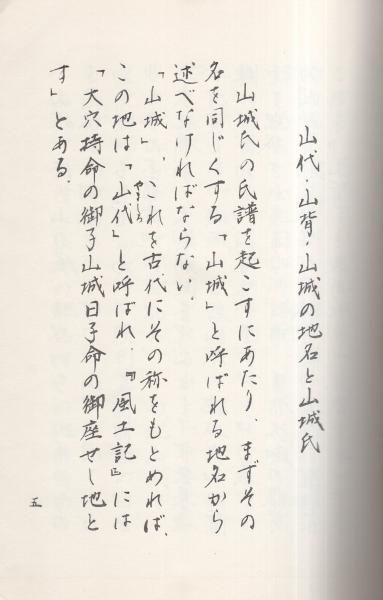 山代・山背・山城の地名と山城氏
山城氏の氏譜を起こすにあたり、まずその
名を同じくする「山城」と呼ばれる地名から
述べなければならない。
「山城」、これを古代にその称をもとめれば、
この地は「山代」と呼ばれ、『風土記』には
やましろ
「大穴持命の御子山城日子命の御座せし地と
す」とある。
五